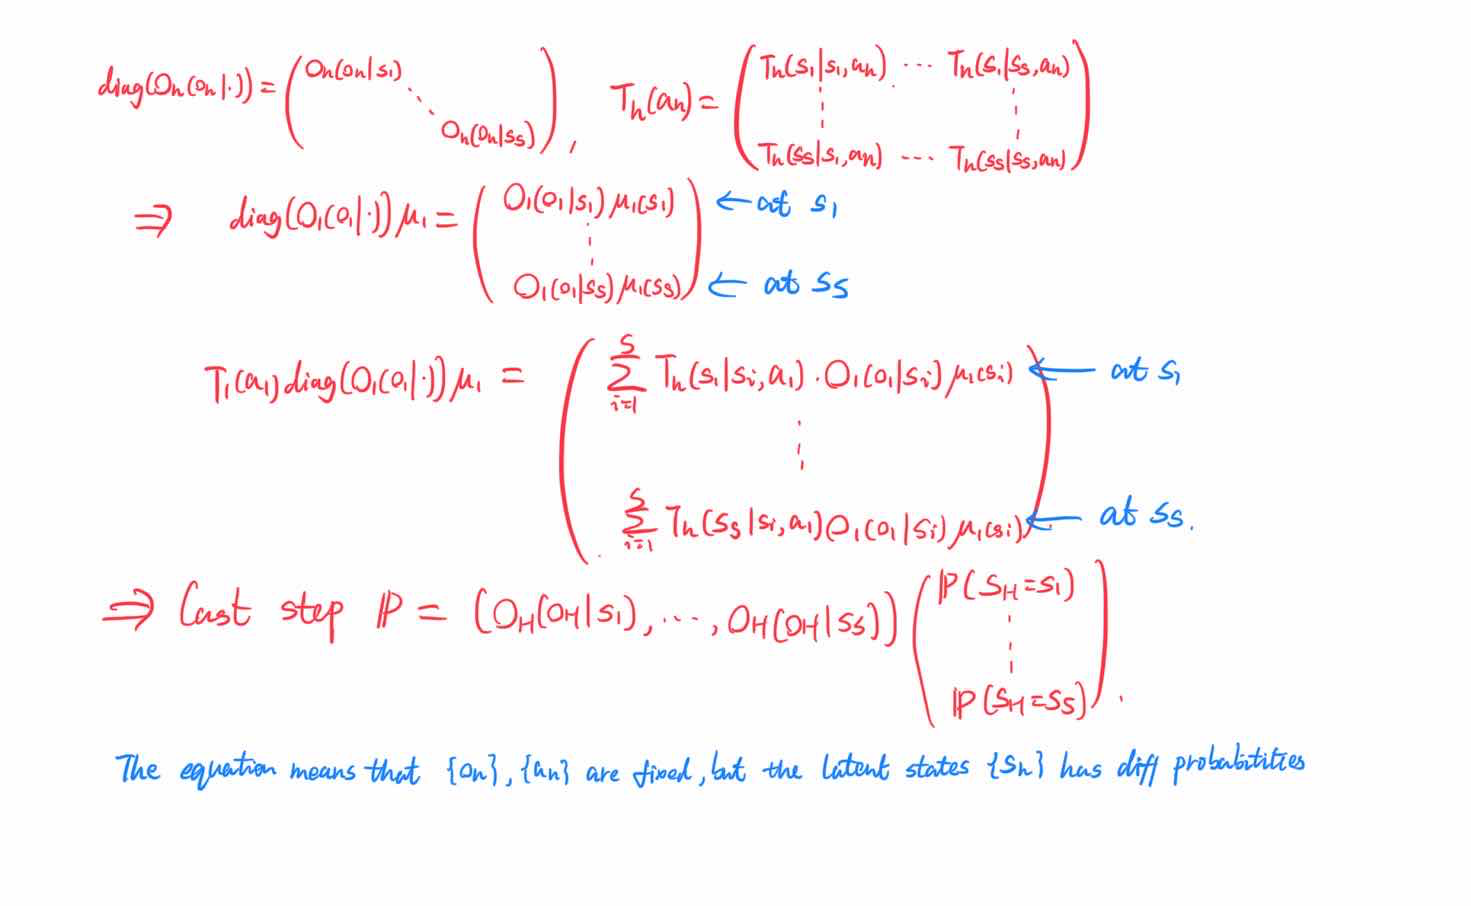 diag(Oh(oh|·)) = ( Oh(oh|s1) ⋱ Oh(oh|sS) ) , Th(ah) = ( Th(s1|s1,ah) ⋯ Th(s1|sS,ah) ⋮ ⋮ Th(sS|s1,ah) ⋯ Th(sS|sS,ah) )
⇒ diag(O1(o1|·)) μ1 = ( O1(o1|s1) μ1(s1) ⋮ O1(o1|sS) μ1(sS) ) ← at s1 ← at sS
T1(a1) diag(O1(o1|·)) μ1 = ( ∑_{i=1}^{S} Th(s1|si,a1) · O1(o1|si) μ1(si) ⋮ ∑_{i=1}^{S} Th(sS|si,a1) O1(o1|si) μ1(si) ) ← at s1 ← at sS.
⇒ Last step ℙ = (OH(oH|s1), ⋯, OH(oH|sS)) ( ℙ(SH=s1) ⋮ ℙ(SH=sS) ) .
The equation means that {oh}, {ah} are fixed, but the latent states {sh} has diff probabitities